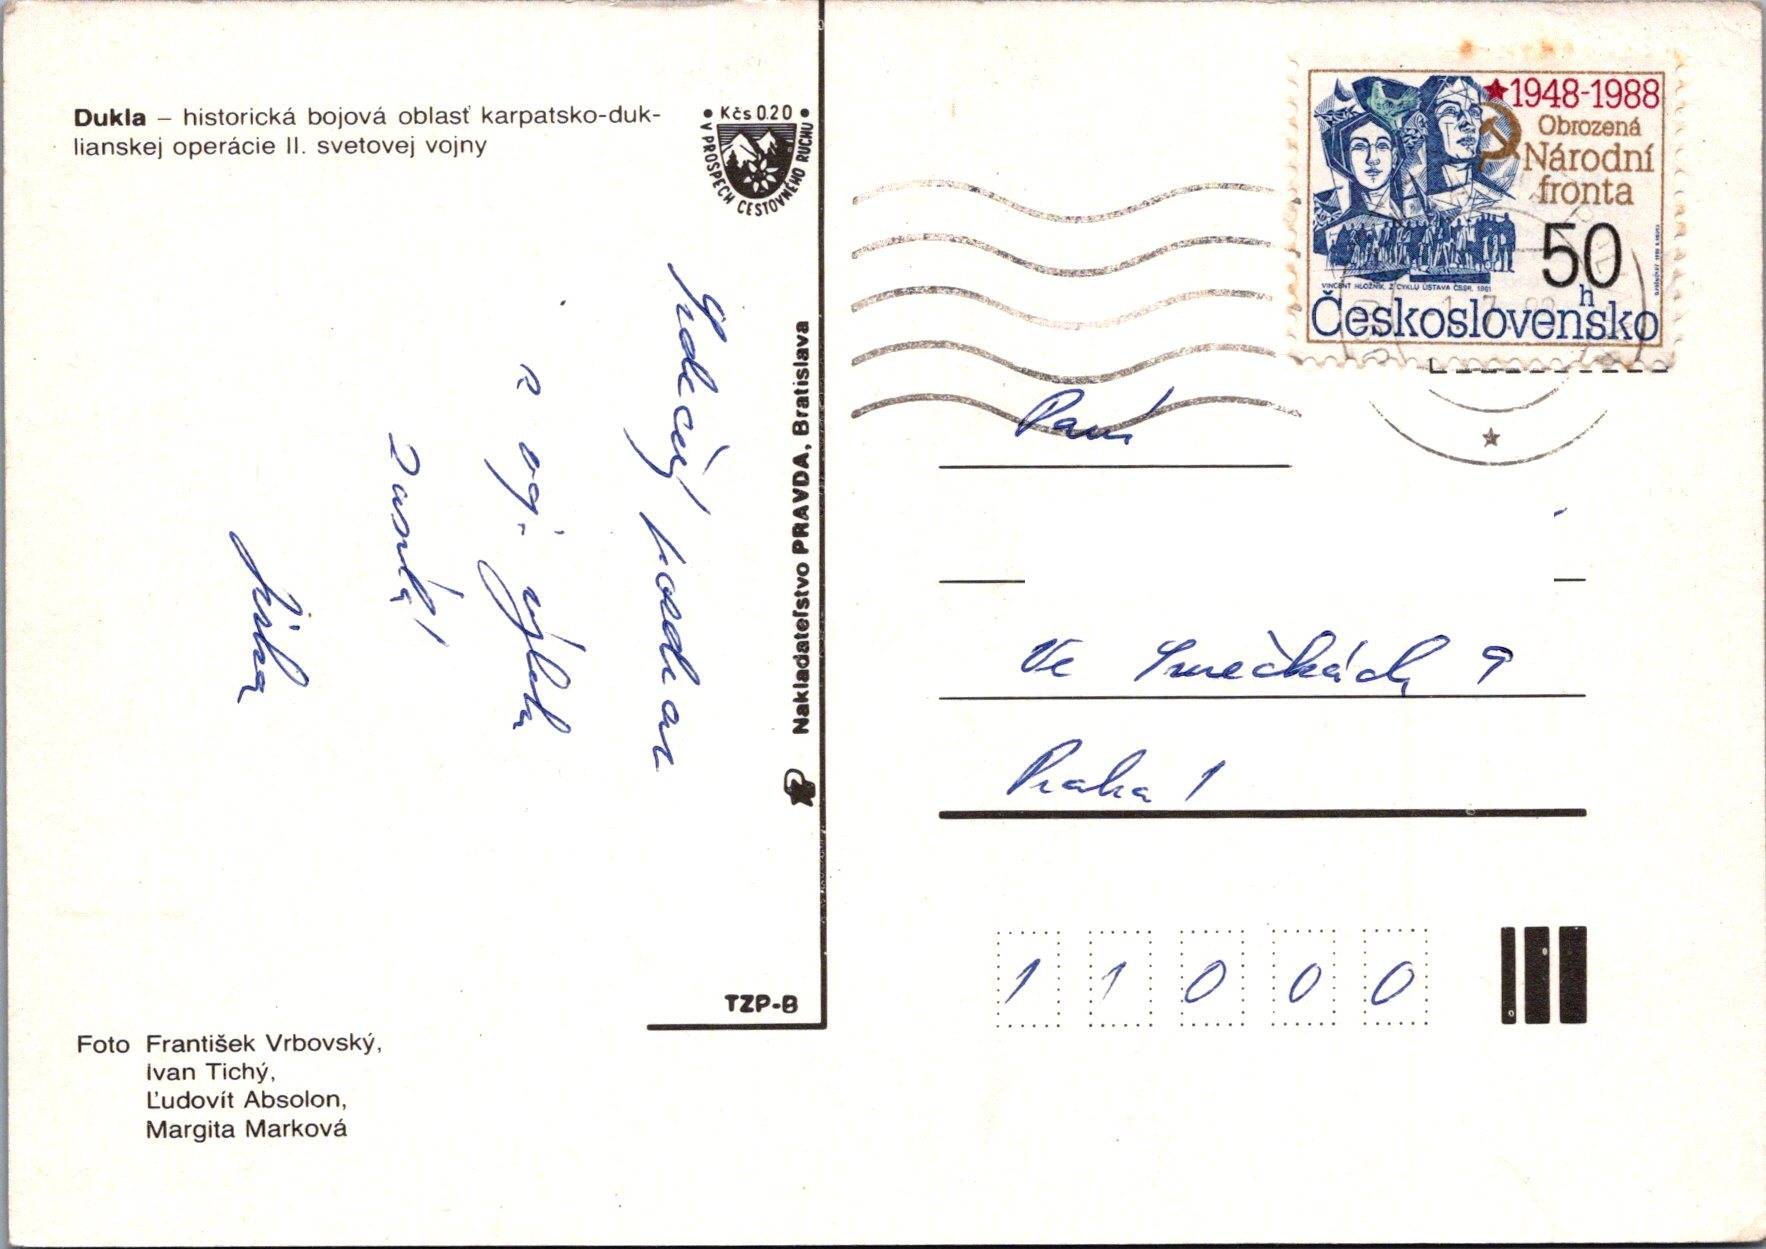 Dukla – historická bojová oblasť karpatsko-duk-
lianskej operácie II. svetovej vojny
• Kčs 0.20 •
V PROSPECH CESTOVNÉHO RUCHU
Srdečný pozdrav
z voj. výletu
zasílá
Jirka
Nakladateľstvo PRAVDA, Bratislava
TZP-B
Foto František Vrbovský,
Ivan Tichý,
Ľudovít Absolon,
Margita Marková
1948-1988
Obrozená
Národní
fronta
50
h
VINCENT HLOŽNÍK, Z CYKLU ÚSTAVA ČSSR, 1961
Československo
Paní
Ve Smečkách 9
Praha 1
1 1 0 0 0